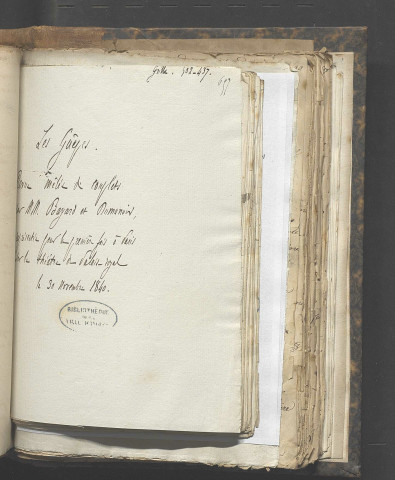 Les Guêpes.
Revue mêlée de couplets
par MM. Bayard et Dumanoir,
représentée pour la première fois à Paris
sur le théâtre du Palais royal
le 30 novembre 1840.
BIBLIOTHÈQUE